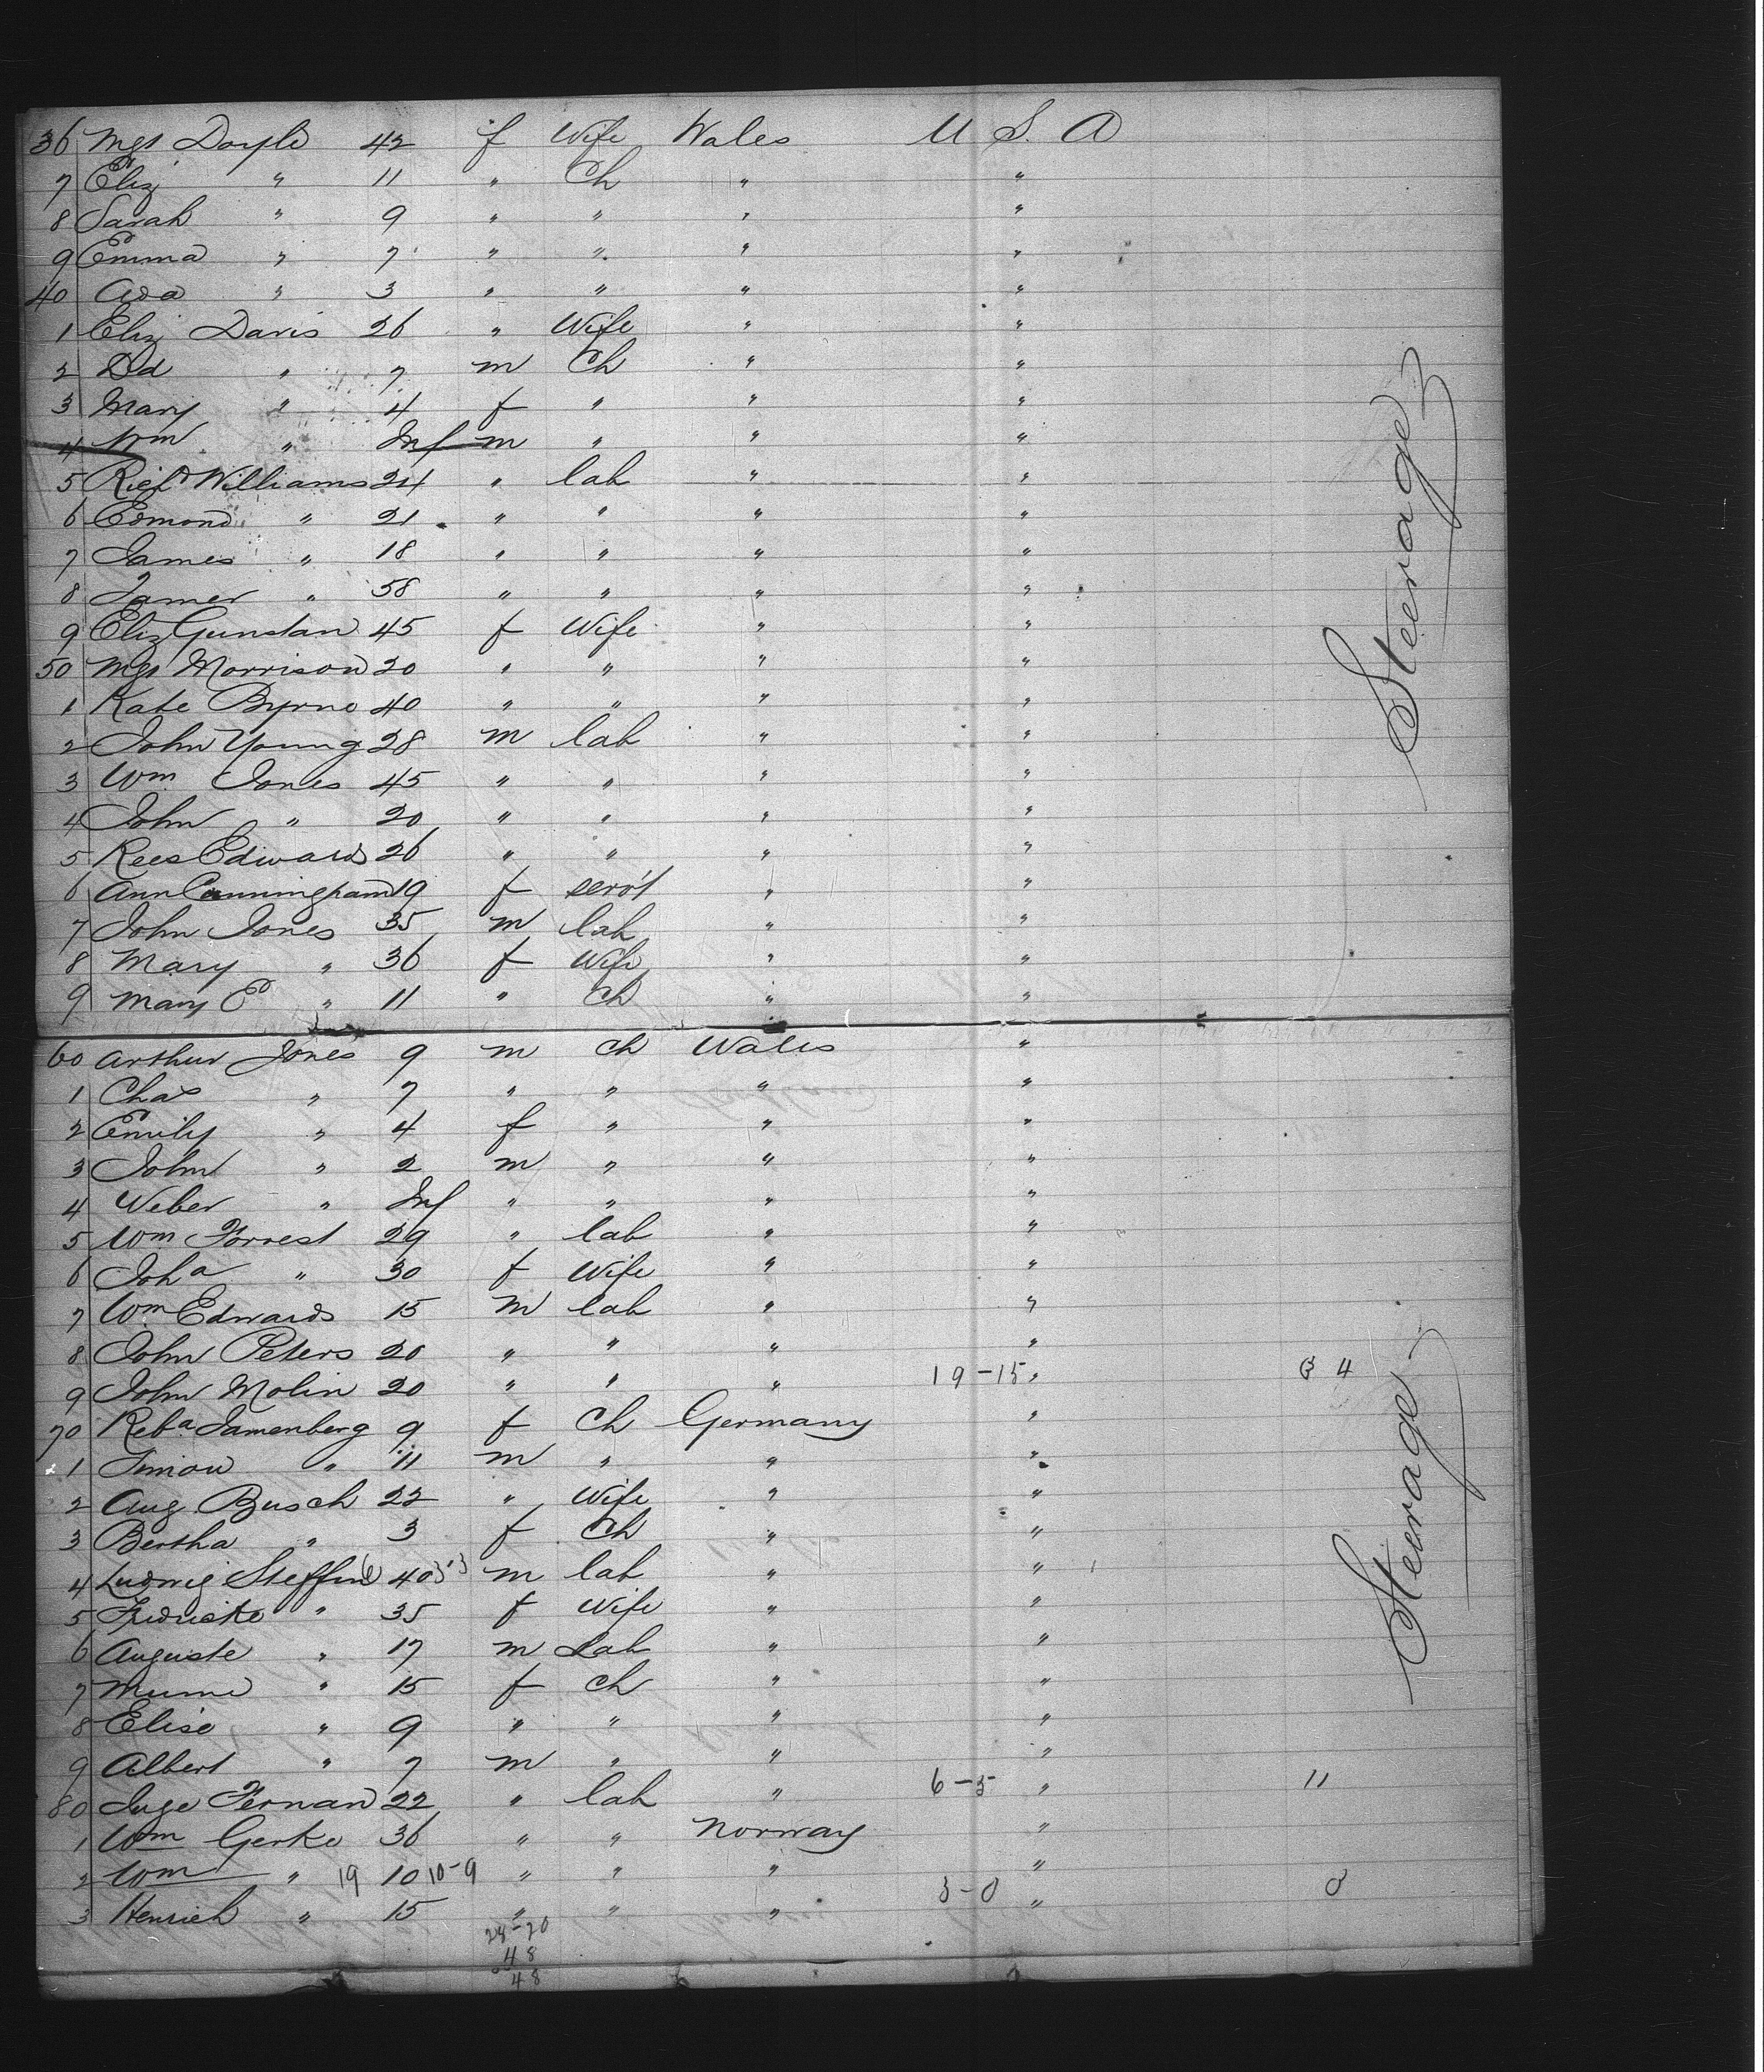 36 Mgt Doyle 42 f Wife Wales U S. A
7 Eliz " 11 " Ch " "
8 Sarah " 9 " " " "
9 Emma " 7 " " " "
40 Ada " 3 " " " "
1 Eliz Davis 26 " Wife " "
2 Dd " 7 m Ch " "
3 Mary " 4 f " " "
4 Wm " Inf m " " "
5 Richd Williams 24 " lab " "
6 Edmond " 21 " " " "
7 James " 18 " " " "
8 James " 58 " " " "
9 Eliz Gunstan 45 f Wife " "
50 Mgt Morrison 20 " " " "
1 Kate Byrne 40 " " " "
2 John Young 28 m lab " "
3 Wm Jones 45 " " " "
4 John " 20 " " " "
5 Rees Edwards 26 " " " "
6 Ann Cunningham 19 f serv't " "
7 John Jones 35 m lab " "
8 Mary " 36 f Wife " "
9 Mary E " 11 " Ch " "
Steerage
60 Arthur Jones 9 m ch Wales "
1 Chas " 7 " " " "
2 Emily " 4 f " " "
3 John " 2 m " " "
4 Weber " Inf " " " "
5 Wm Forrest 29 " lab " "
6 Joha " 30 f Wife " "
7 Wm Edwards 15 m lab " "
8 John Peters 20 " " " "
9 John Molin 20 " " " 19-15 " 34
70 Reba Jamenberg 9 f Ch Germany "
1 Simon " 11 m " " "
2 Aug Busch 22 " Wife " "
3 Bertha " 3 f Ch " "
4 Ludwig Steffin 40 m lab " "
5 " 35 f Wife " "
6 Auguste " 17 m Lab " "
7 " 15 f ch " "
8 Elise " 9 " " " "
9 Albert " 7 m " " "
80 Inge Fernan 22 " lab " 6-5 " 11
1 Wm Gerke 36 " " Norway "
2 Wm " 19 10 10-9 " " " "
3 Henrich " 15 " " " 3-0 " 3
Steerage
28-20
48
48